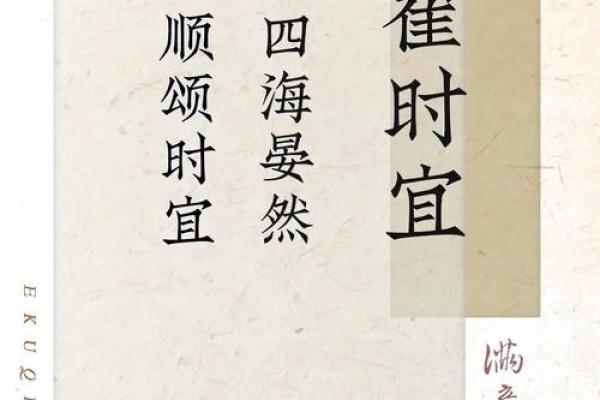 崔时宜
四海晏然
顺颂时宜
EKUQ
满